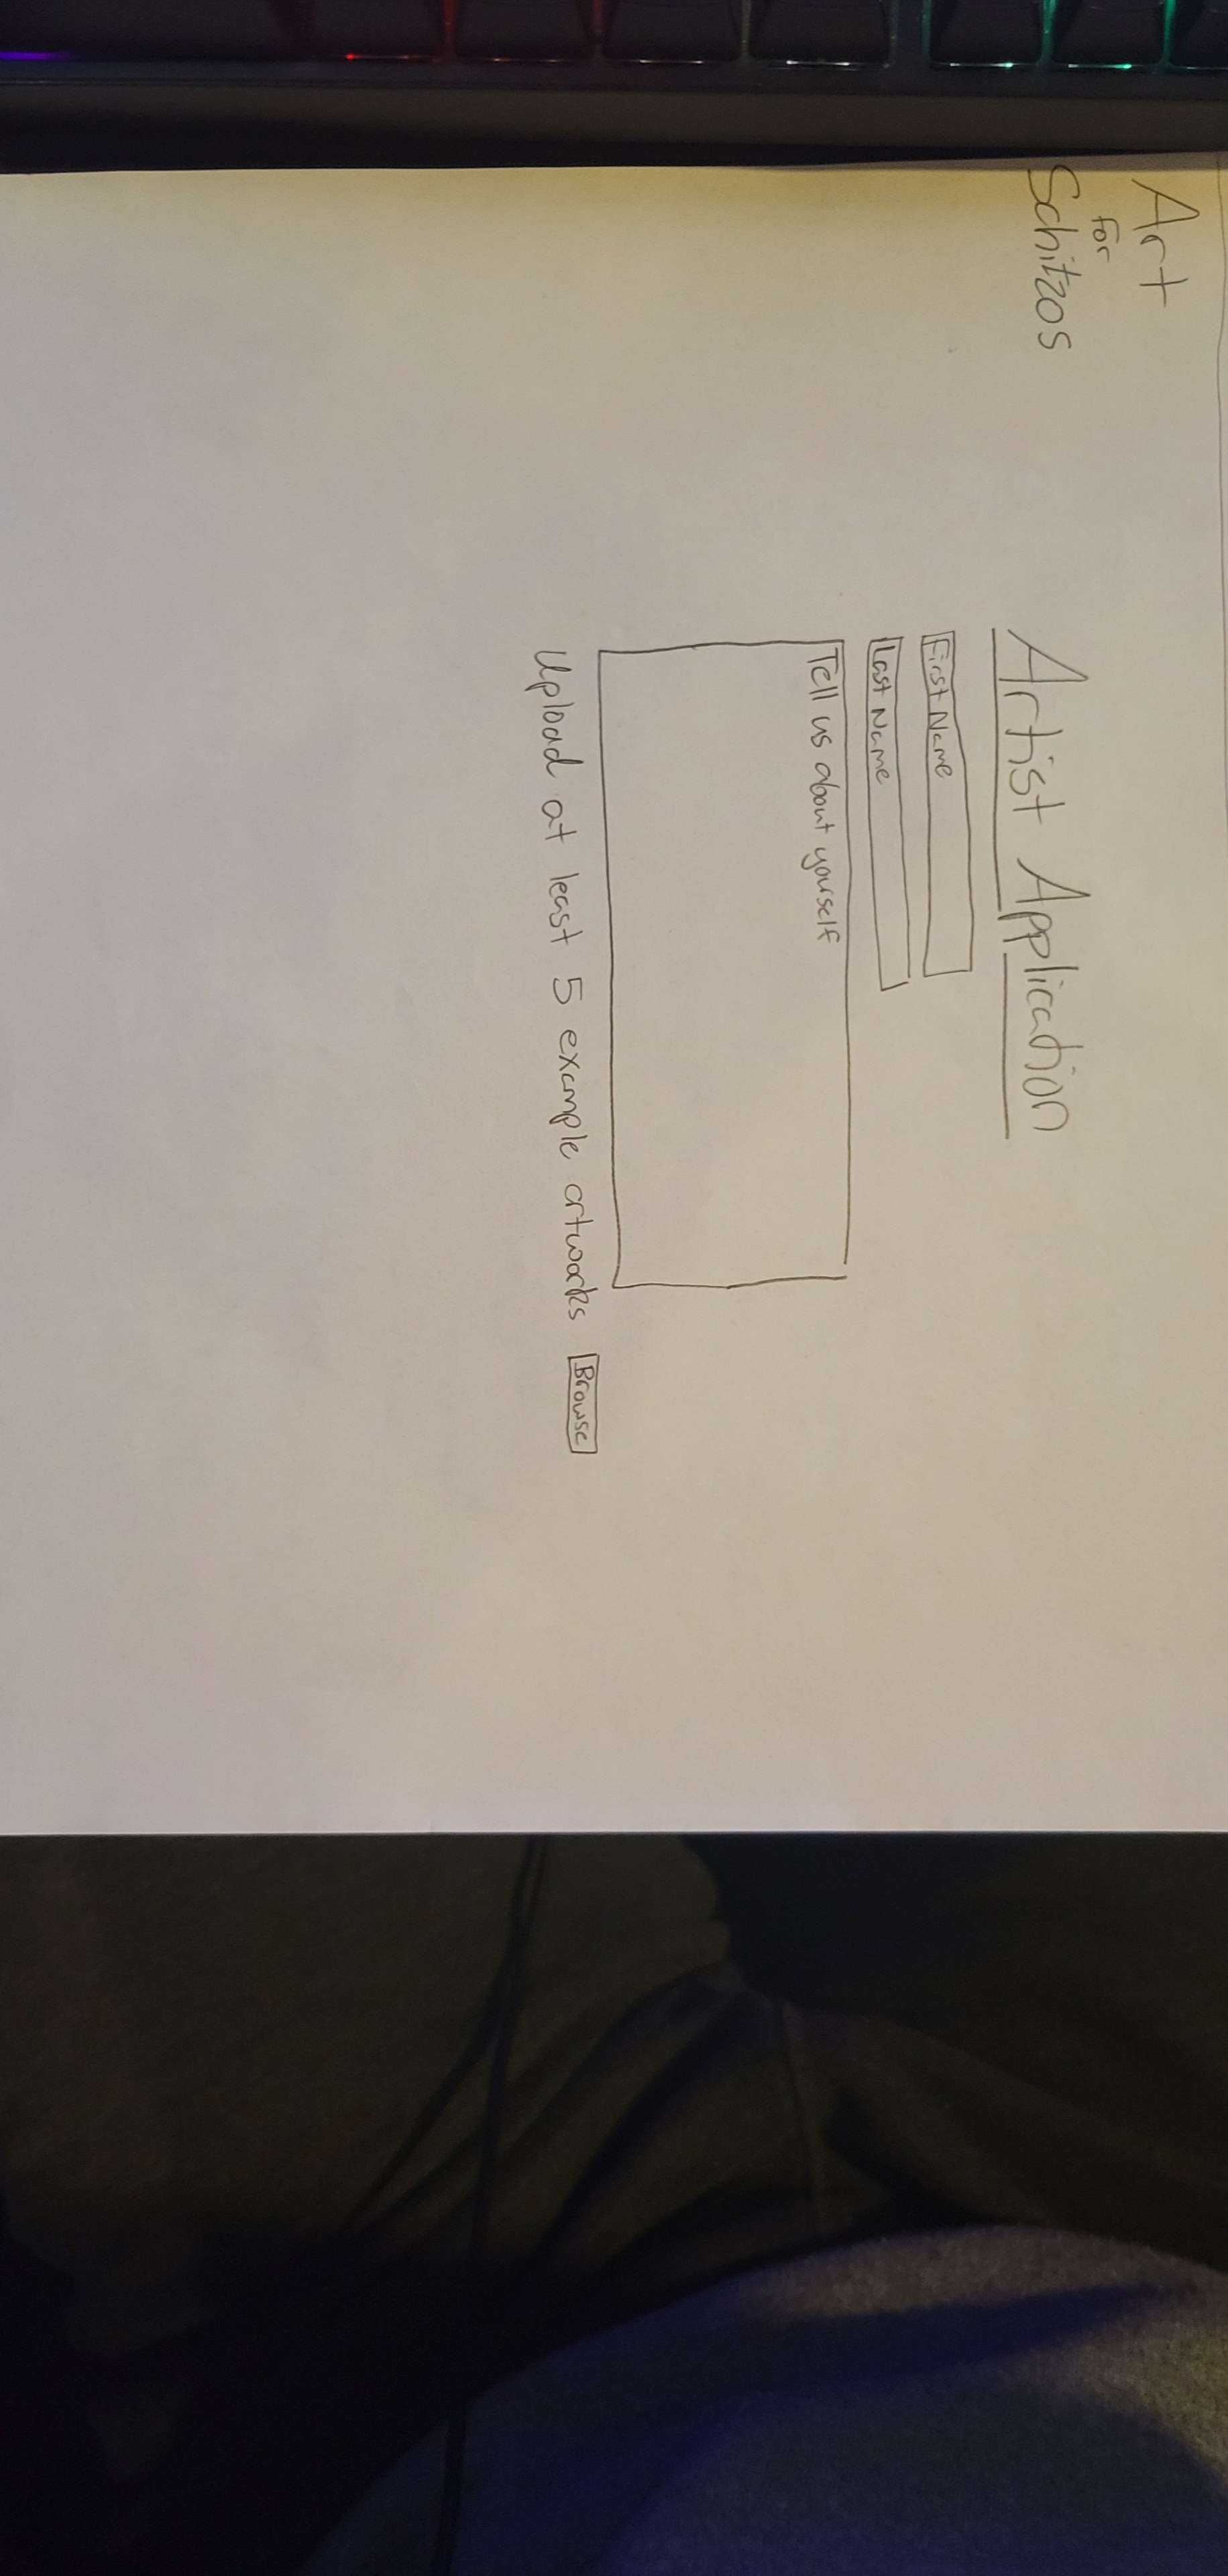 Art
for
Schitzos
Artist Application
First Name
Last Name
Tell us about yourself
Upload at least 5 example artworks Browse